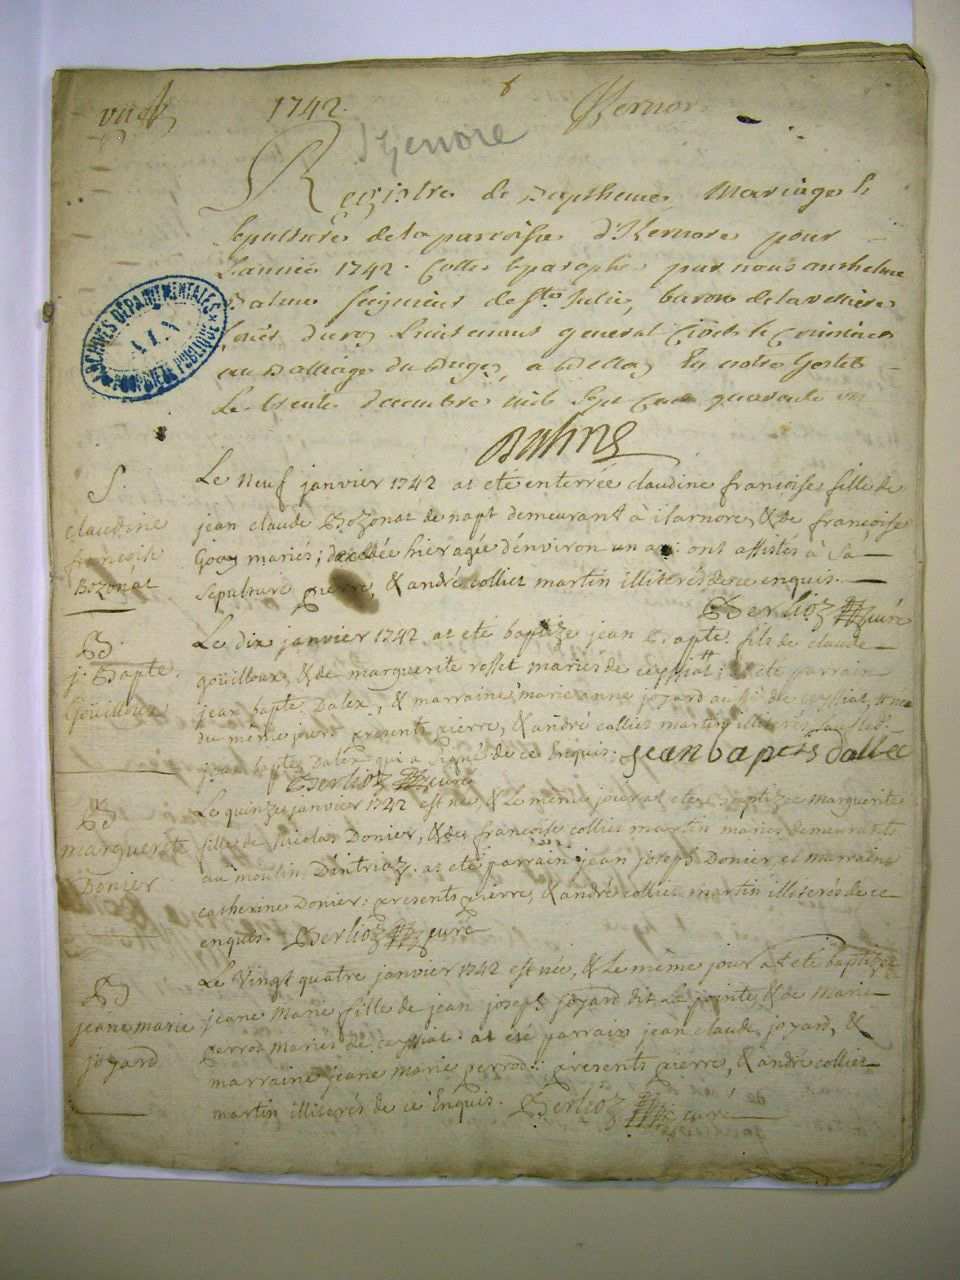 1742.
Izernore
Registre de Mariages
Sepultures de la parroisse d'Izernore pour
L'année 1742. par nous anthelme
Seigneur de Ste Julie, baron de la
Lieutenant general
au Balliage du Bugey, a Belley En notre hostel
Le trente decembre mil Sept Cent quarante un
ARCHIVES DÉPARTEMENTALES
AIN
PROPRIÉTÉ PUBLIQUE
Balme
S.
claudine
françoise
Bozonat
Le Neuf janvier 1742 at eté enterrée claudine françoise fille de
jean claude Bozonat de napt demeurant à isarnore, & de françoise
mariés; decedée hier agée d'environ un an: ont assistés à Sa
Sepulture pierre, & andré collier martin illiterés de ce enquis.
Berlioz curé
B.
j. Bapte.
Goüilloux
Le dix janvier 1742 at eté baptize jean Bapte. fils de claude
goüilloux, & de marguerite resset mariés de ceyssiat; at eté parrain
jean bapte Dalex, & marraine marie anne joyard aussi de ceyssiat,
du même jour presents pierre, & andré collier martin illiterés sauf led.
jean baptes Dalex qui a Signé de ce Enquis. jean bapets dallec
Berlioz curé
B.
marguerite
Donier
Le quinze janvier 1742 est neé, & Le même jour at eté baptizee marguerite
fille de Nicolas Donier, & de françoise collier martin mariés demeurants
au moulin Dintriaz. at eté parrain jean joseph Donier, et marraine
catherine Donier: presents pierre, & andré collier martin illiterés de ce
enquis. Berlioz curé
B
jeane marie
joyard
Le Vingt quatre janvier 1742 est née, & Le même jour at eté baptizée
jeane Marie fille de jean joseph joyard dit La pointe, & de Marie
perrod mariés de ceyssiat. at eté parrain jean claude joyard, &
marraine jeane marie perrod: presents pierre, & andré collier
martin illiterés de ce Enquis. Berlioz curé